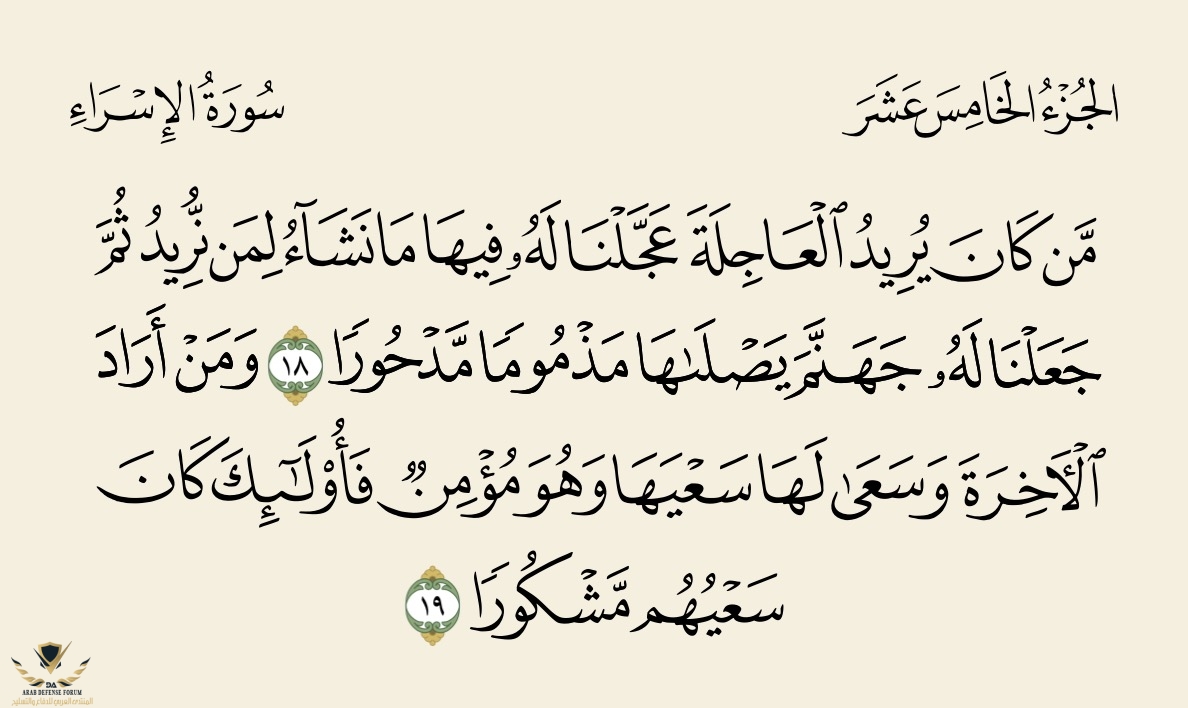 الجُزْءُ الخَامِسَ عَشَرَ
سُورَةُ الإِسْرَاءِ
مَّن كَانَ يُرِيدُ ٱلْعَاجِلَةَ عَجَّلْنَا لَهُۥ فِيهَا مَا نَشَآءُ لِمَن نُّرِيدُ ثُمَّ
جَعَلْنَا لَهُۥ جَهَنَّمَ يَصْلَىٰهَا مَذْمُومًا مَّدْحُورًا ١٨ وَمَنْ أَرَادَ
ٱلْأَخِرَةَ وَسَعَىٰ لَهَا سَعْيَهَا وَهُوَ مُؤْمِنٌ فَأُو۟لَـٰٓئِكَ كَانَ
سَعْيُهُم مَّشْكُورًا ١٩
DA
ARAB DEFENSE FORUM
المنتدى العربي للدفاع والتسليح